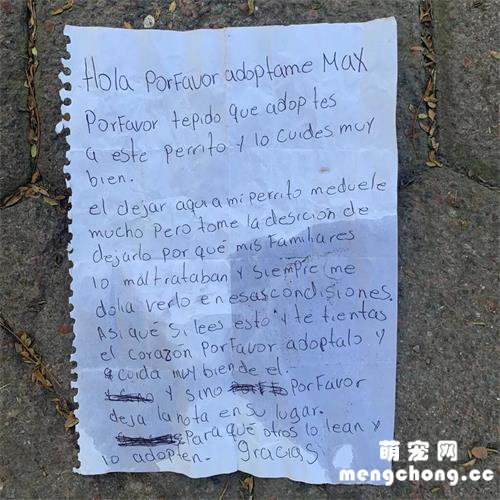 Hola PorFavor adoptame Max
PorFavor tepido que adoptes
a este perrito y lo cuides muy
bien.
el dejar aqui a mi perrito me duele
mucho Pero tome la desicion de
dejarlo por qué mis Familiares
lo maltrataban y siempre me
dolia verlo en esas condisiones.
Asi qué si lees esto y te tientas
el corazon PorFavor adoptalo y
cuida muy bien de el.
y sino PorFavor
deja la nota en su lugar.
Para qué otros lo lean y
lo adopten. gracias
萌宠网
mengchong.cc